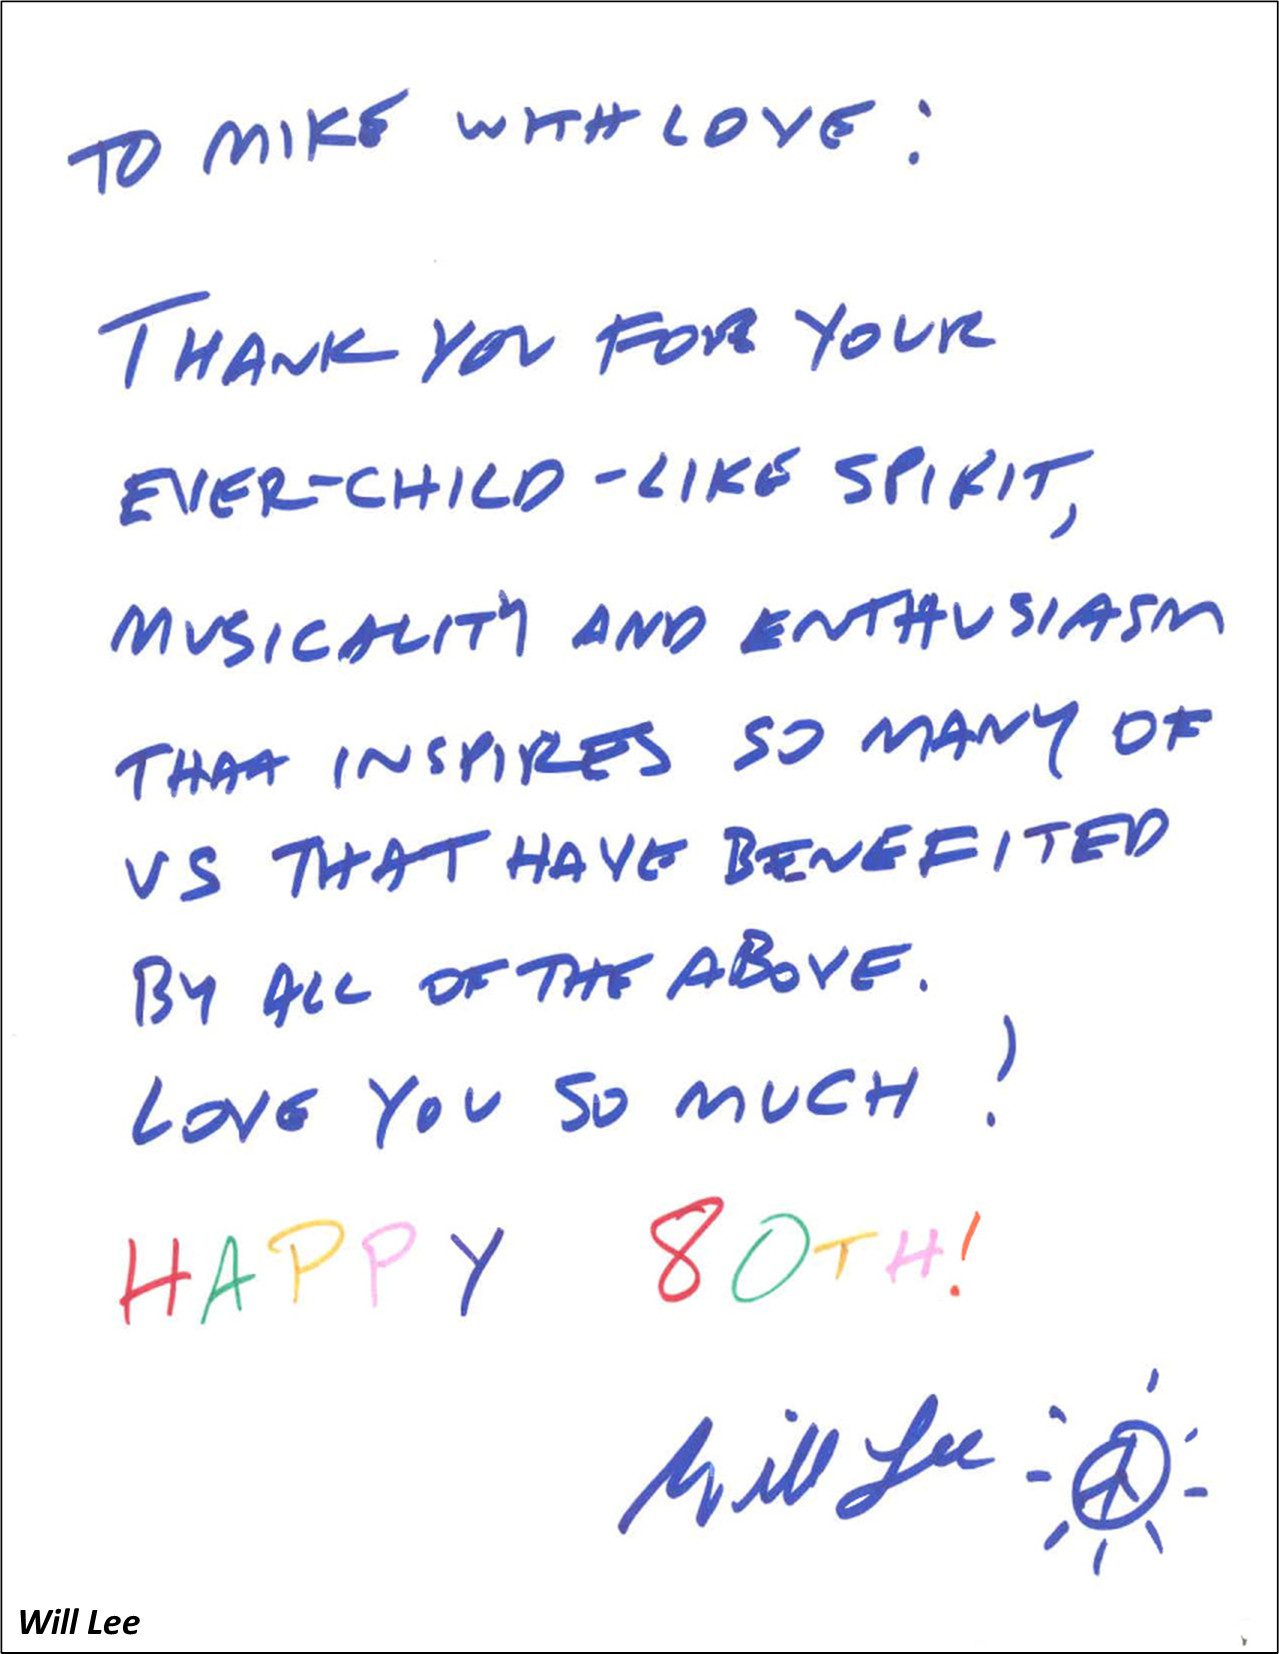 TO MIKE WITH LOVE:
THANK YOU FOR YOUR
EVER-CHILD-LIKE SPIRIT,
MUSICALITY AND ENTHUSIASM
THAT INSPIRES SO MANY OF
US THAT HAVE BENEFITED
BY ALL OF THE ABOVE.
LOVE YOU SO MUCH!
HAPPY 80TH!
Will Lee
Will Lee